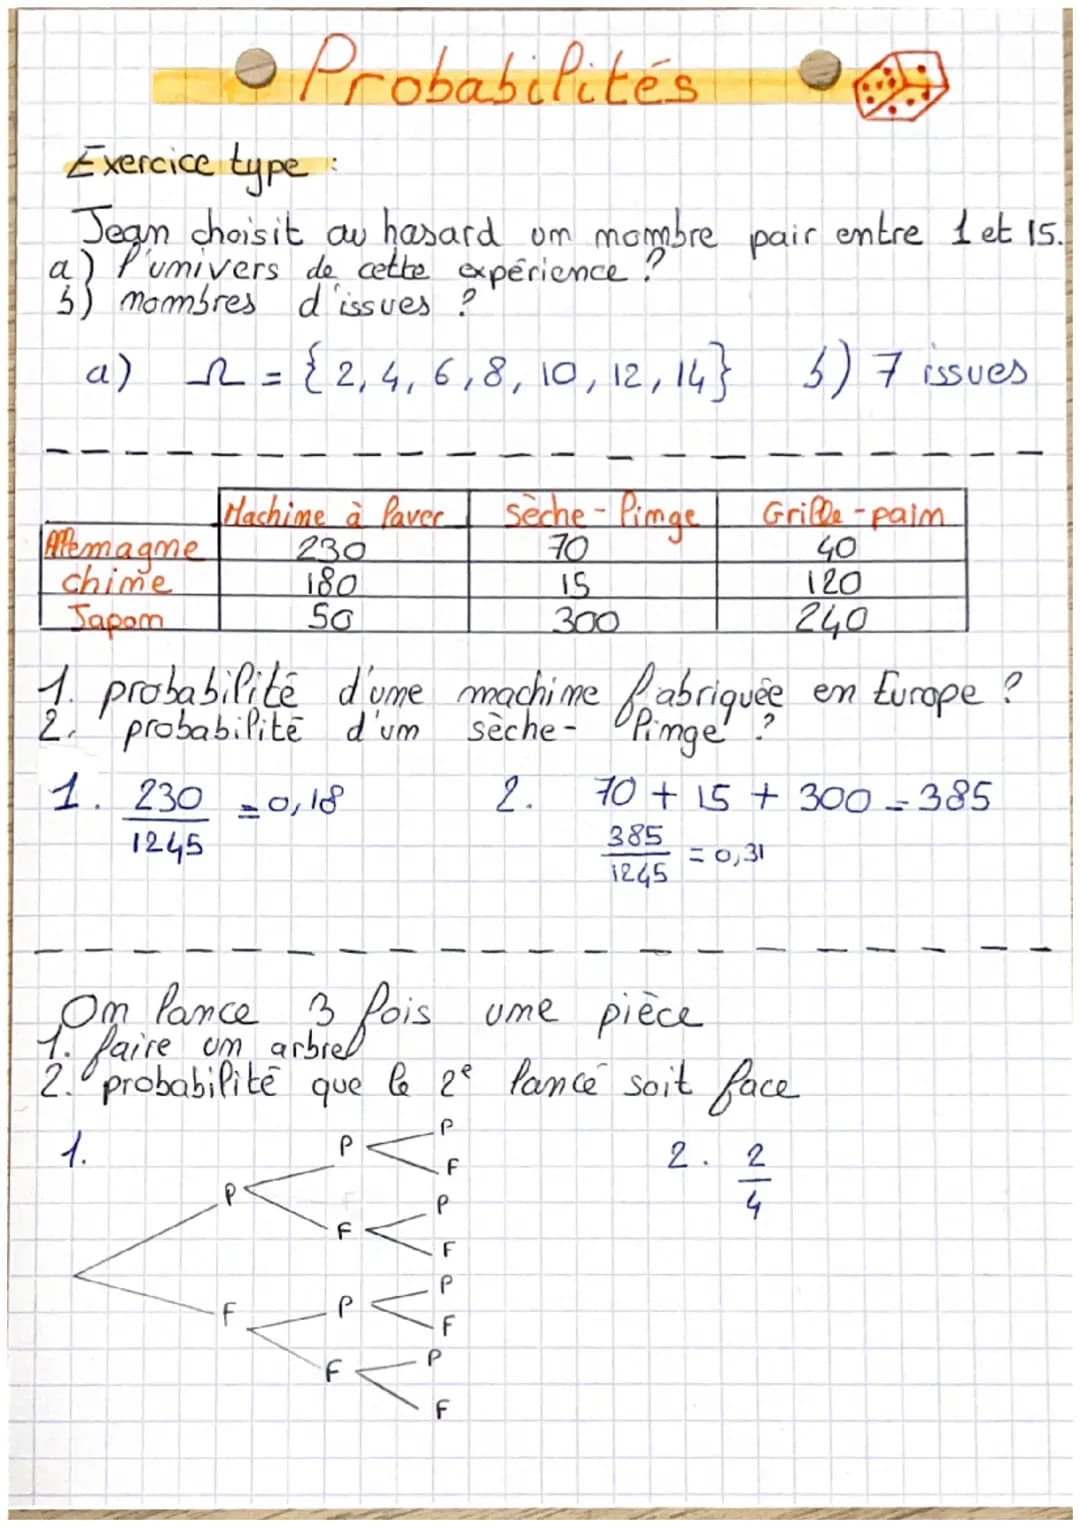 Probabilités
Exercice type :
Jean choisit au hasard un nombre pair entre 1 et 15.
a) l'univers de cette expérience ?
b) nombres d'issues ?
a) Ω = {2, 4, 6, 8, 10, 12, 14} b) 7 issues
Machine à laver Sèche-linge Grille-pain
Allemagne 230 70 40
chine 180 15 120
Japon 50 300 240
1. probabilité d'une machine fabriquée en Europe ?
2. probabilité d'un sèche-linge ?
1. 230/1245 = 0,18 2. 70 + 15 + 300 = 385
385/1245 = 0,31
On lance 3 fois une pièce
1. faire un arbre
2. probabilité que le 2e lancé soit face
1. 2. 2/4
P
P
F
P
P
F
F
P
P
F
F
P
F
F